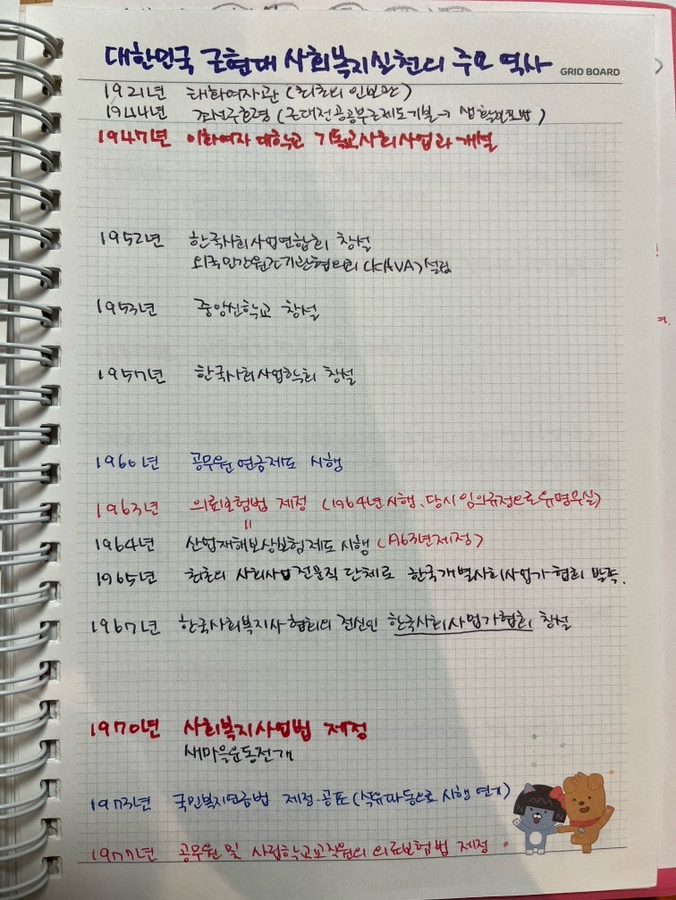 대한민국 근현대 사회복지실천의 주요 역사
GRID BOARD
1921년 태화여자관 (최초의 인보관)
1944년 조선구호령 (근대적 공공부조제도 기본→ 생활보호법)
1947년 이화여자대학교 기독교사회사업과 개설
1952년 한국사회사업연합회 창설
외국민간원조기관협의회 (KAVA) 설립
1953년 중앙신학교 창설
1957년 한국사회사업학회 창설
1960년 공무원 연금제도 시행
1963년 의료보험법 제정 (1964년 시행, 당시 임의규정으로 유명무실)
1964년 산업재해보상보험제도 시행 (1963년 제정)
1965년 최초의 사회사업 전문직 단체로 한국개별사회사업가협회 발족.
1967년 한국사회복지사협회의 전신인 한국사회사업가협회 창설
1970년 사회복지사업법 제정
새마을운동전개
1973년 국민복지연금법 제정·공포 (석유파동으로 시행 연기)
1977년 공무원 및 사립학교교직원의 의료보험법 제정